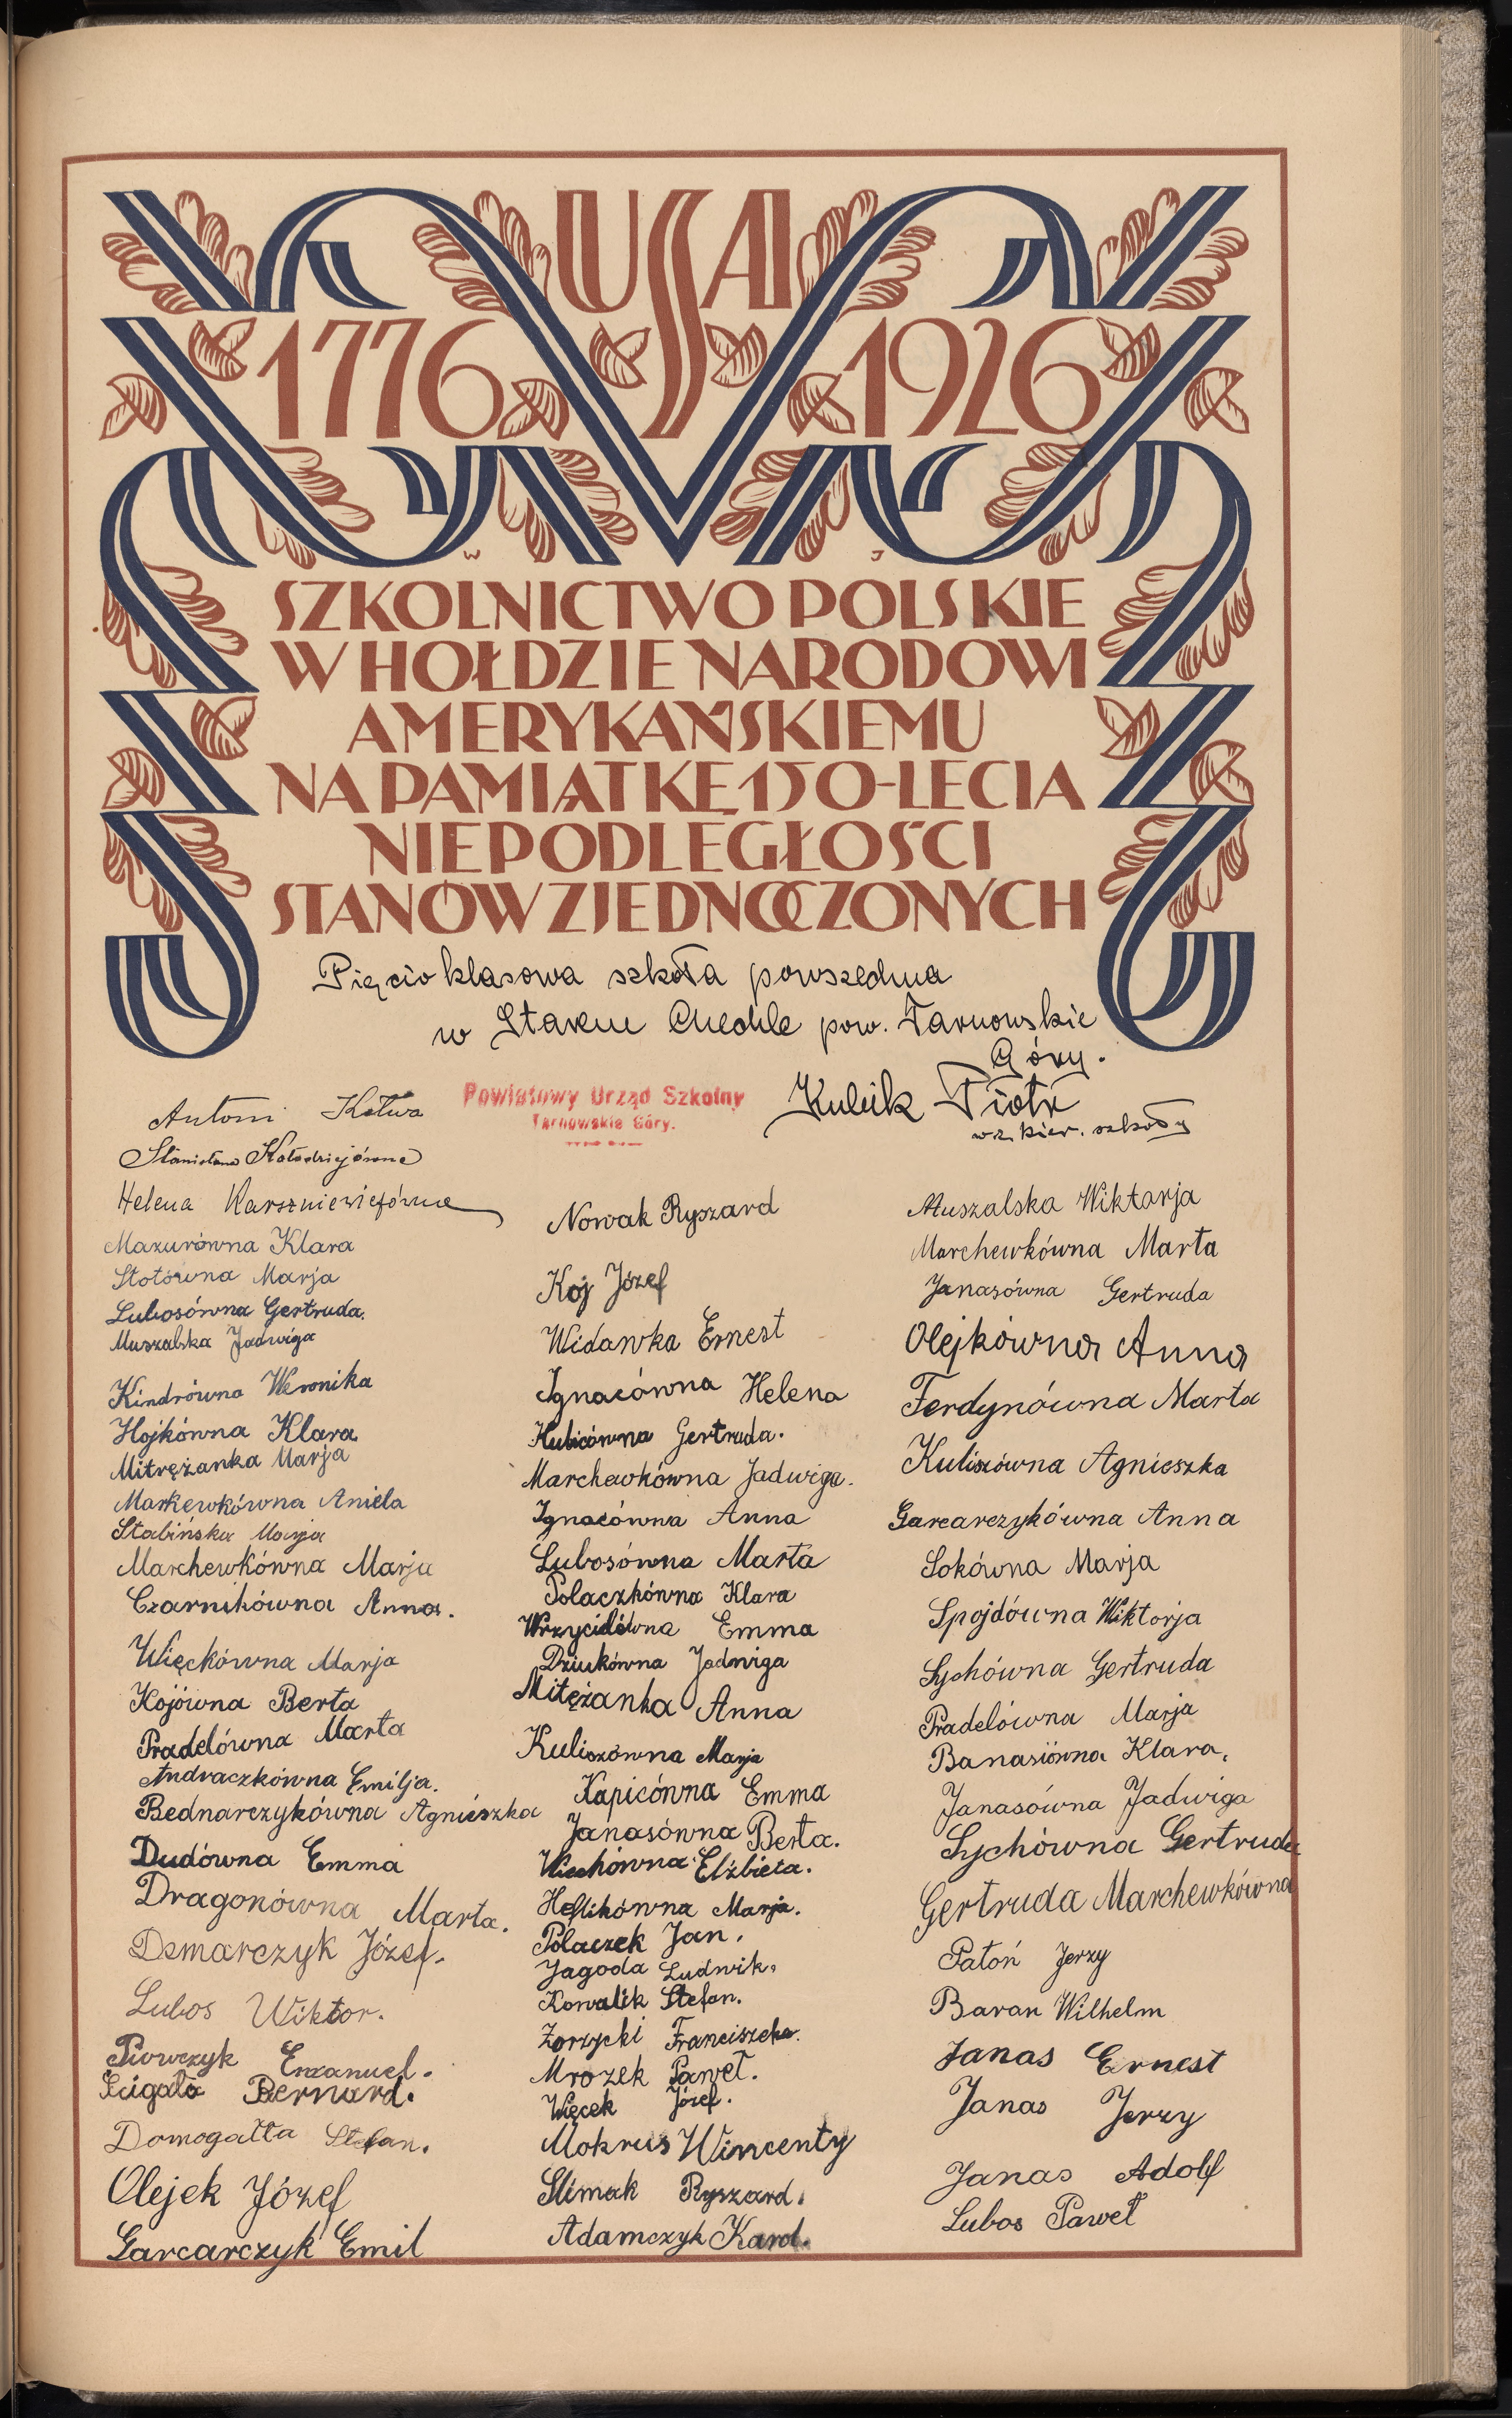 USA
1776 1926
W J
SZKOLNICTWO POLSKIE
W HOŁDZIE NARODOWI
AMERYKAŃSKIEMU
NA PAMIĄTKĘ 150-LECIA
NIEPODLEGŁOŚCI
STANÓW ZJEDNOCZONYCH
Pięcio klasowa szkoła powszechna
w Starem Chechle pow. Tarnowskie
Góry.
Powiatowy Urząd Szkolny
Tarnowskie Góry.
Kubik Piotr
wz. kier. szkoły
Antoni Kotwa
Stanisława Kołodziejówna
Helena Karszniewiczówna
Mazurówna Klara
Stotówna Marja
Lubosówna Gertruda.
Muszalska Jadwiga
Kindrówna Weronika
Hojkówna Klara
Mitrężanka Marja
Markewkówna Aniela
Stabińska Marja
Marchewkówna Marja
Czarnikówna Anna.
Więckówna Marja
Kojówna Berta
Pradelówna Marta
Andraczkówna Emilja.
Bednarczykówna Agnieszka
Dudówna Emma
Dragonówna Marta.
Demarczyk Józef.
Lubos Wiktor.
Piowczyk Emanuel.
Ścigała Bernard.
Domogałła Stefan.
Olejek Józef
Garcarczyk Emil
Nowak Ryszard
Koj Józef
Widawka Ernest
Ignacówna Helena
Hubicówna Gertruda.
Marchewkówna Jadwiga.
Ignacówna Anna
Lubosówna Marta
Polaczkówna Klara
Wrzycidówna Emma
Dziukówna Jadwiga
Mitężanka Anna
Kuliszówna Marja
Kapicówna Emma
Janasówna Berta.
Wiechówna Elżbieta.
Heflikówna Marja.
Polaczek Jan.
Jagoda Ludwik.
Kowalik Stefan.
Zorzycki Franciszek.
Mrozek Paweł.
Więcek Józef.
Mokrus Wincenty
Ślimak Ryszard.
Adamczyk Karol.
Muszalska Wiktarja
Marchewkówna Marta
Janasówna Gertruda
Olejkówna Anna
Ferdynówna Marta
Kuliszówna Agnieszka
Garcarczykówna Anna
Sokówna Marja
Spojdówna Wiktorja
Sychówna Gertruda
Pradelówna Marja
Banasiówna Klara.
Janasówna Jadwiga
Sychówna Gertruda
Gertruda Marchewkówna
Patoń Jerzy
Baran Wilhelm
Janas Ernest
Janas Jerzy
Janas Adolf
Lubos Paweł